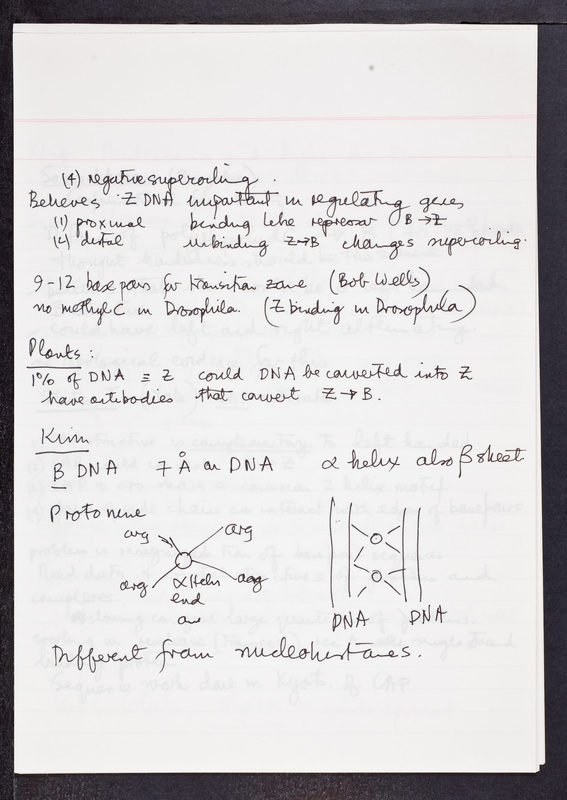 (4) negative supercoiling.
Believes Z DNA important in regulating genes
(1) proximal binding like repressor B → Z
(2) distal unbinding Z → B changes supercoiling.
9-12 base pairs for transition zone (Bob Wells)
no methyl C in Drosophila. (Z binding in Drosophila)
Plants:
1% of DNA ≡ Z could DNA be converted into Z
have antibodies that convert Z → B.
Kim
B DNA 7 Å on DNA α helix also β sheet
Protamine
arg arg
arg α Helix arg
end
on
DNA DNA
Different from nucleohistones.